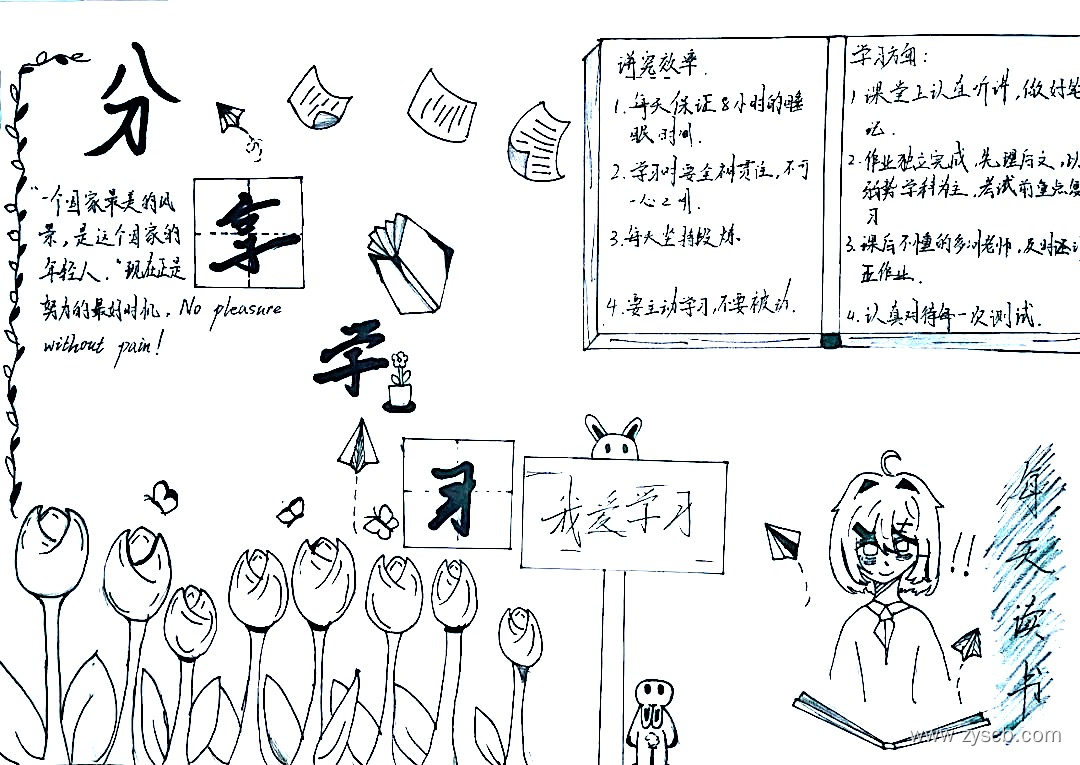 分
享
学
习
"一个国家最美的风
景，是这个国家的
年轻人。"现在正是
努力的最好时机，No pleasure
without pain!
讲究效率.
1.每天保证8小时的睡
眠时间.
2.学习时要全神贯注,不可
一心二用.
3.每天坚持锻炼.
4.要主动学习,不要被动.
学习方面:
1.课堂上认真听讲,做好笔
记.
2.作业独立完成,先理后文,以
学科为主,考试前重点复
习
3.课后不懂的多问老师,及时
正作业.
4.认真对待每一次测试.
我爱学习
!!
每
天
读
书
www.zyscb.com